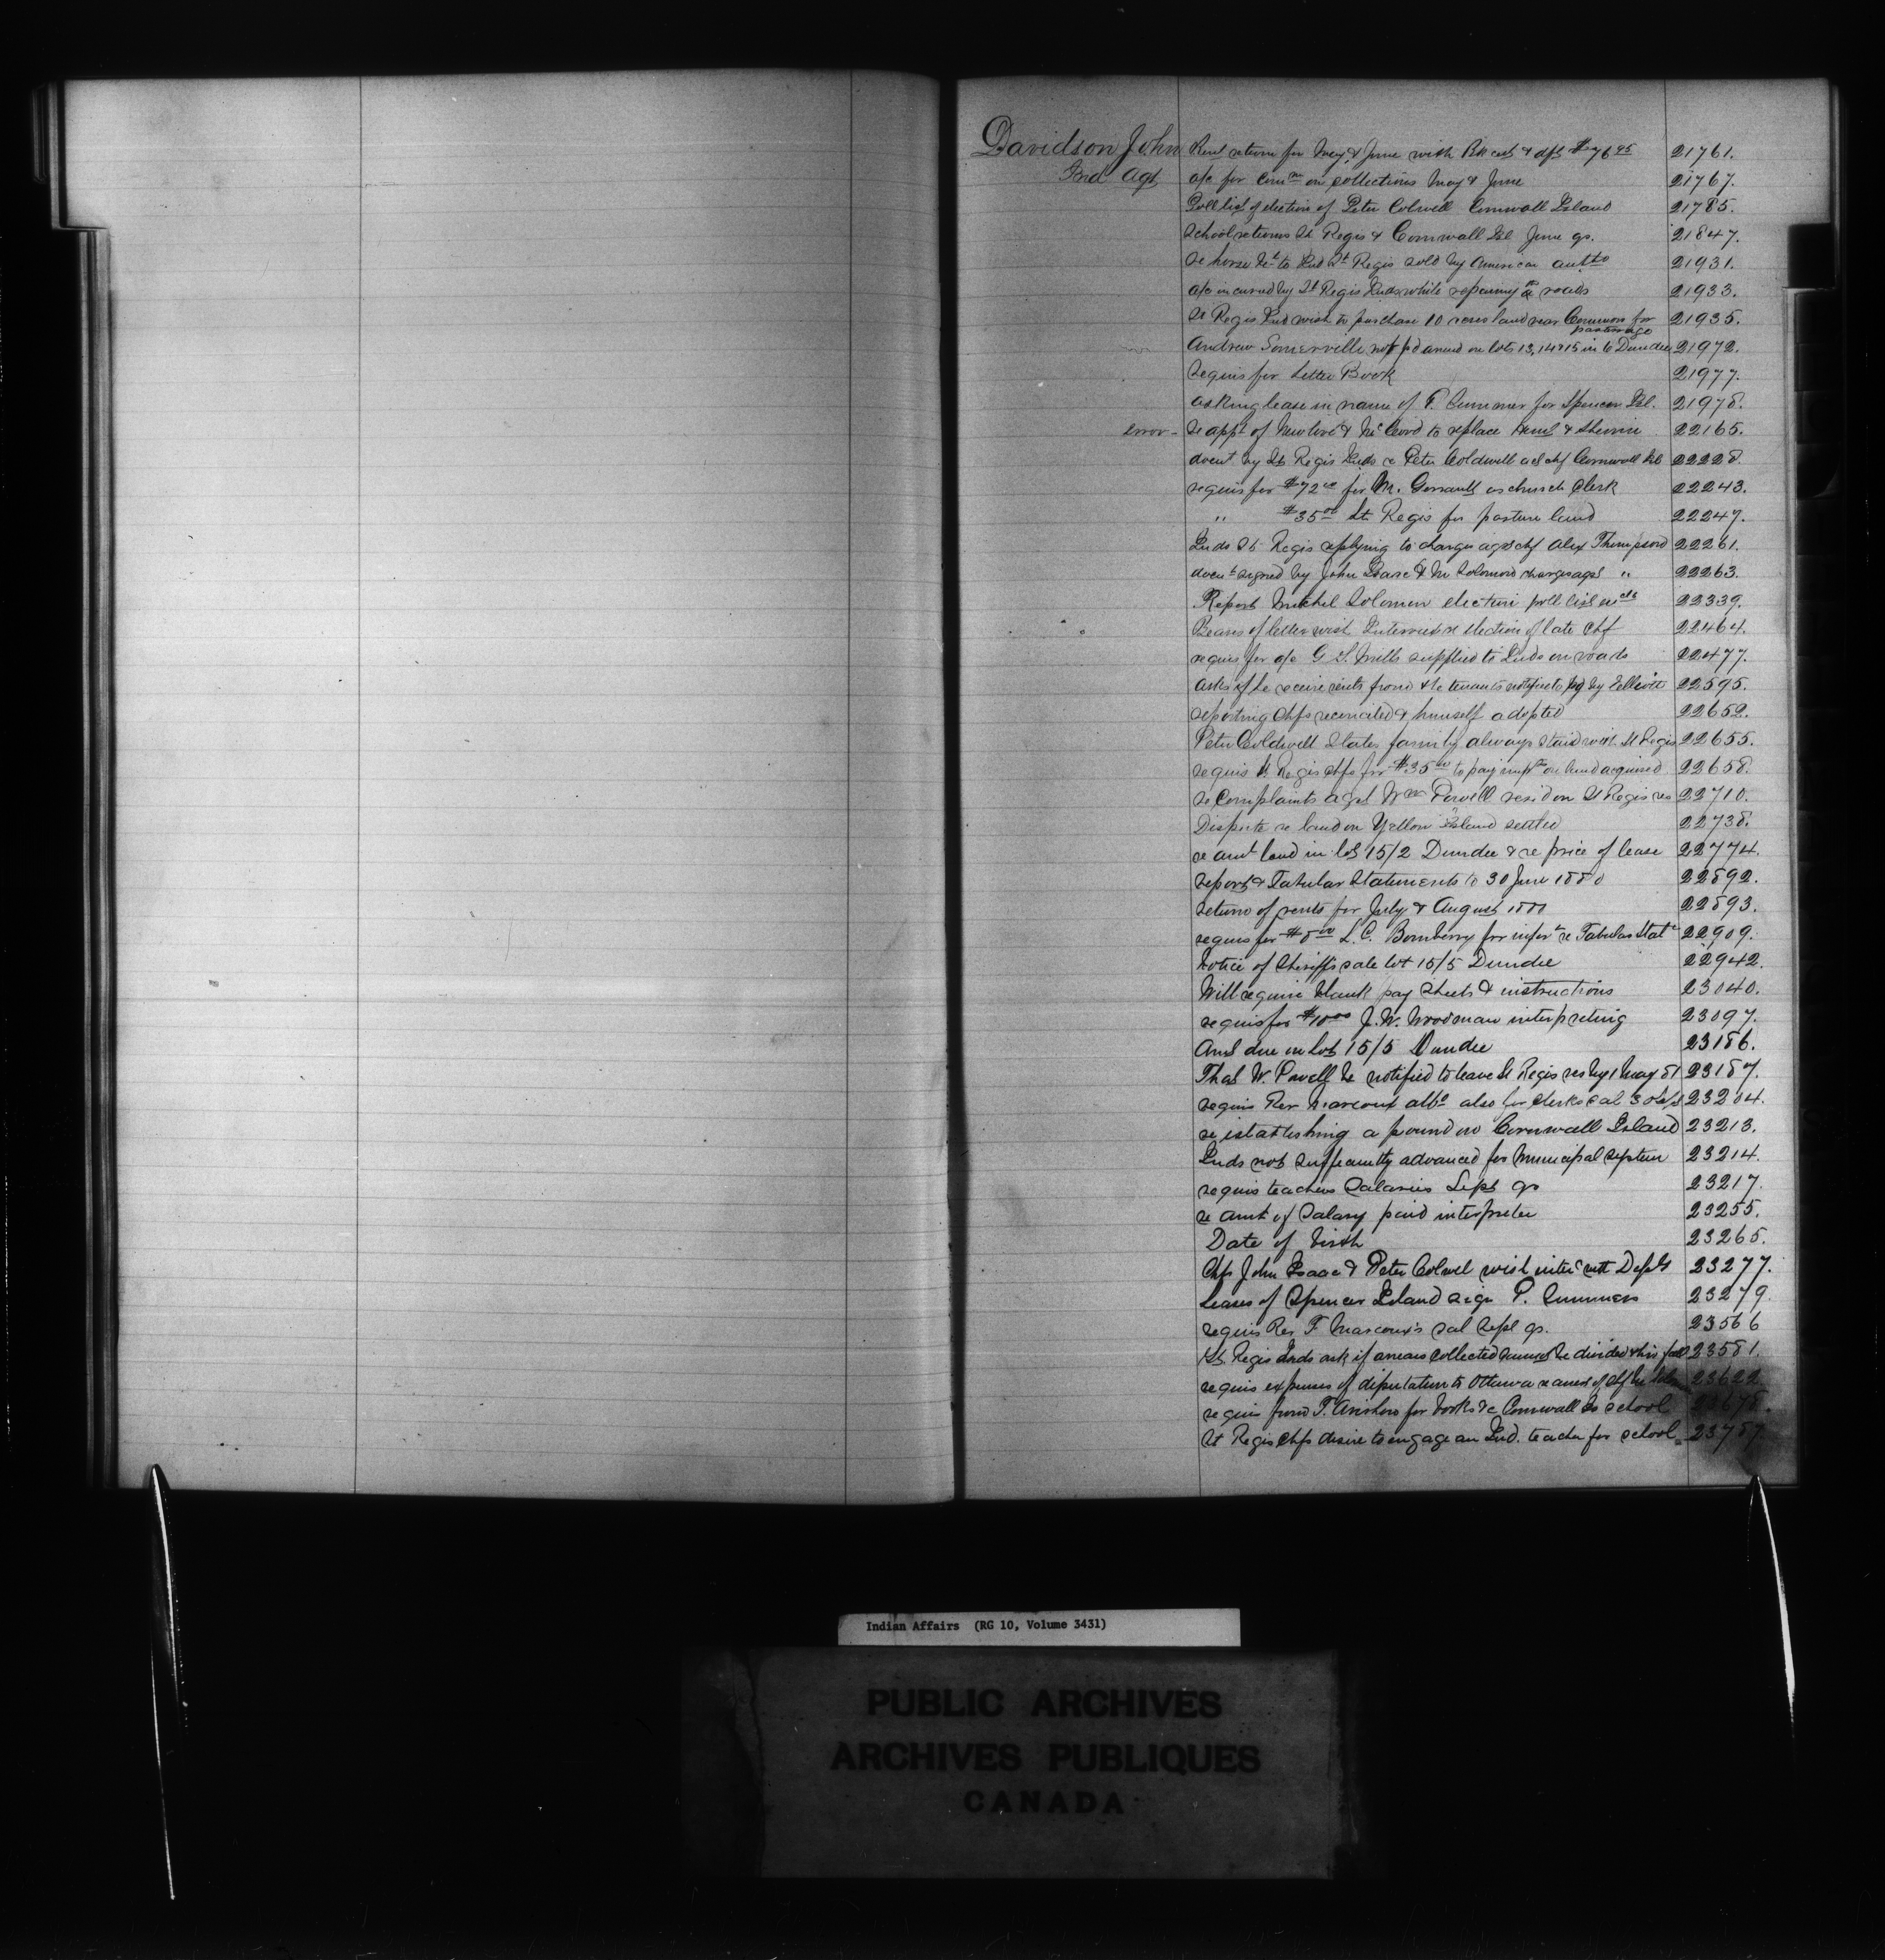 Davidson John Rent return for May & June with Bk cert & dft $76 95 21761.
Ind Agt a/c for Comn on collections May & June 21767.
Poll list of election of Peter Colwell Cornwall Island 21785.
School returns St Regis & Cornwall Isl June qr. 21847.
Re horse to Ind St Regis sold by American 21931.
a/c incurred by St Regis Inds while repairing roads 21933.
St Regis Ind wish to purchase 10 acres land near Commons for pasturage 21935.
Andrew Somerville not pd on lots 13, 14 & 15 in 6 Dundee 21972.
Requis for Letter Book 21977.
asking lease in name of P. Cummer for Spencer Isl. 21978.
error - Re appt of & to replace & 22165.
by St Regis Inds re Peter Coldwell chf Cornwall Isl 22228.
requis for $72 00 for M. as church clerk 22243.
" $35 00 St Regis for pasture land 22247.
Inds St Regis replying to charges agst chf Alex Thompson 22261.
signed by John Isaac & M Solomon charges agst " 22263.
Report Michel Solomon election poll list 22339.
Bearers of letter wish Interview re election of late chf 22464.
requis for a/c G S. Mills supplied to Inds on roads 22477.
Asks if he receive rents from tenants by 22595.
reporting chfs reconciled & himself adopted 22652.
Peter Coldwell States family always with St Regis 22655.
requis St Regis chfs for $35 00 to pay on land acquired 22658.
re Complaints agst Wm Powell resid on St Regis res 22710.
Dispute re land on Yellow Island settled 22738.
re amt land in lot 15/2 Dundee & re price of lease 22774.
report & Tabular Statements to 30 June 1880 22892.
return of rents for July & August 1880 22893.
requis for $8 00 L. C. Bomberry for re Tabular Statt 22909.
Notice of Sheriffs sale lot 15/5 Dundee 22942.
Will require blank pay sheets & instructions 23040.
requis for $10 00 J. W. Woodman interpreting 23097.
Amt due on lot 15/5 Dundee 23186.
That W. Powell be notified to leave St Regis res by 1 May 81 23187.
requis Rev Marcoux also for clerks sal 23204.
re establishing a pound on Cornwall Island 23213.
Inds not sufficiently advanced for Municipal System 23214.
requis teachers Salaries Sept qr 23217.
re amt of Salary paid interpreter 23255.
Date of birth 23265.
Chfs John Isaac & Peter Colwel wish with Dept 23277.
Leases of Spencer Island P. Cummers 23279.
requis Rev F Marcoux's sal Sept qr. 23566
St Regis Inds ask if arrears collected be divided this fall 23581.
requis expenses of deputation to Ottawa 23622
requis from T. for books &c Cornwall Is school 23678.
St Regis chfs desire to engage an Ind. teacher for school 23787.
Indian Affairs (RG 10, Volume 3431)
PUBLIC ARCHIVES
ARCHIVES PUBLIQUES
CANADA